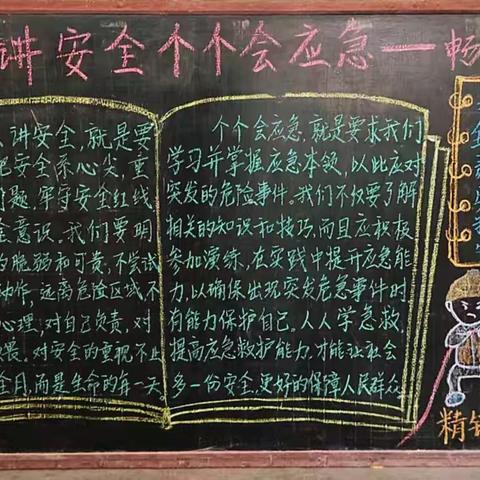 讲安全个个会应急一畅
讲安全,就是要
把安全系心尖,重
问题,牢守安全红线
全意识。我们要明
的脆弱和可贵,不尝试
动作,远离危险区域,不
心理,对自己负责,对
畏。对安全的重视不止
全月,而是生命的每一天
个个会应急,就是要求我们
学习并掌握应急本领,以此应对
突发的危险事件。我们不仅要了解
相关的知识和技巧,而且应积极
参加演练,在实践中提升应急能
力,以确保出现突发危急事件时
有能力保护自己,人人学急救,
提高应急救护能力,才能让社会
多一份安全,更好的保障人民群众
精